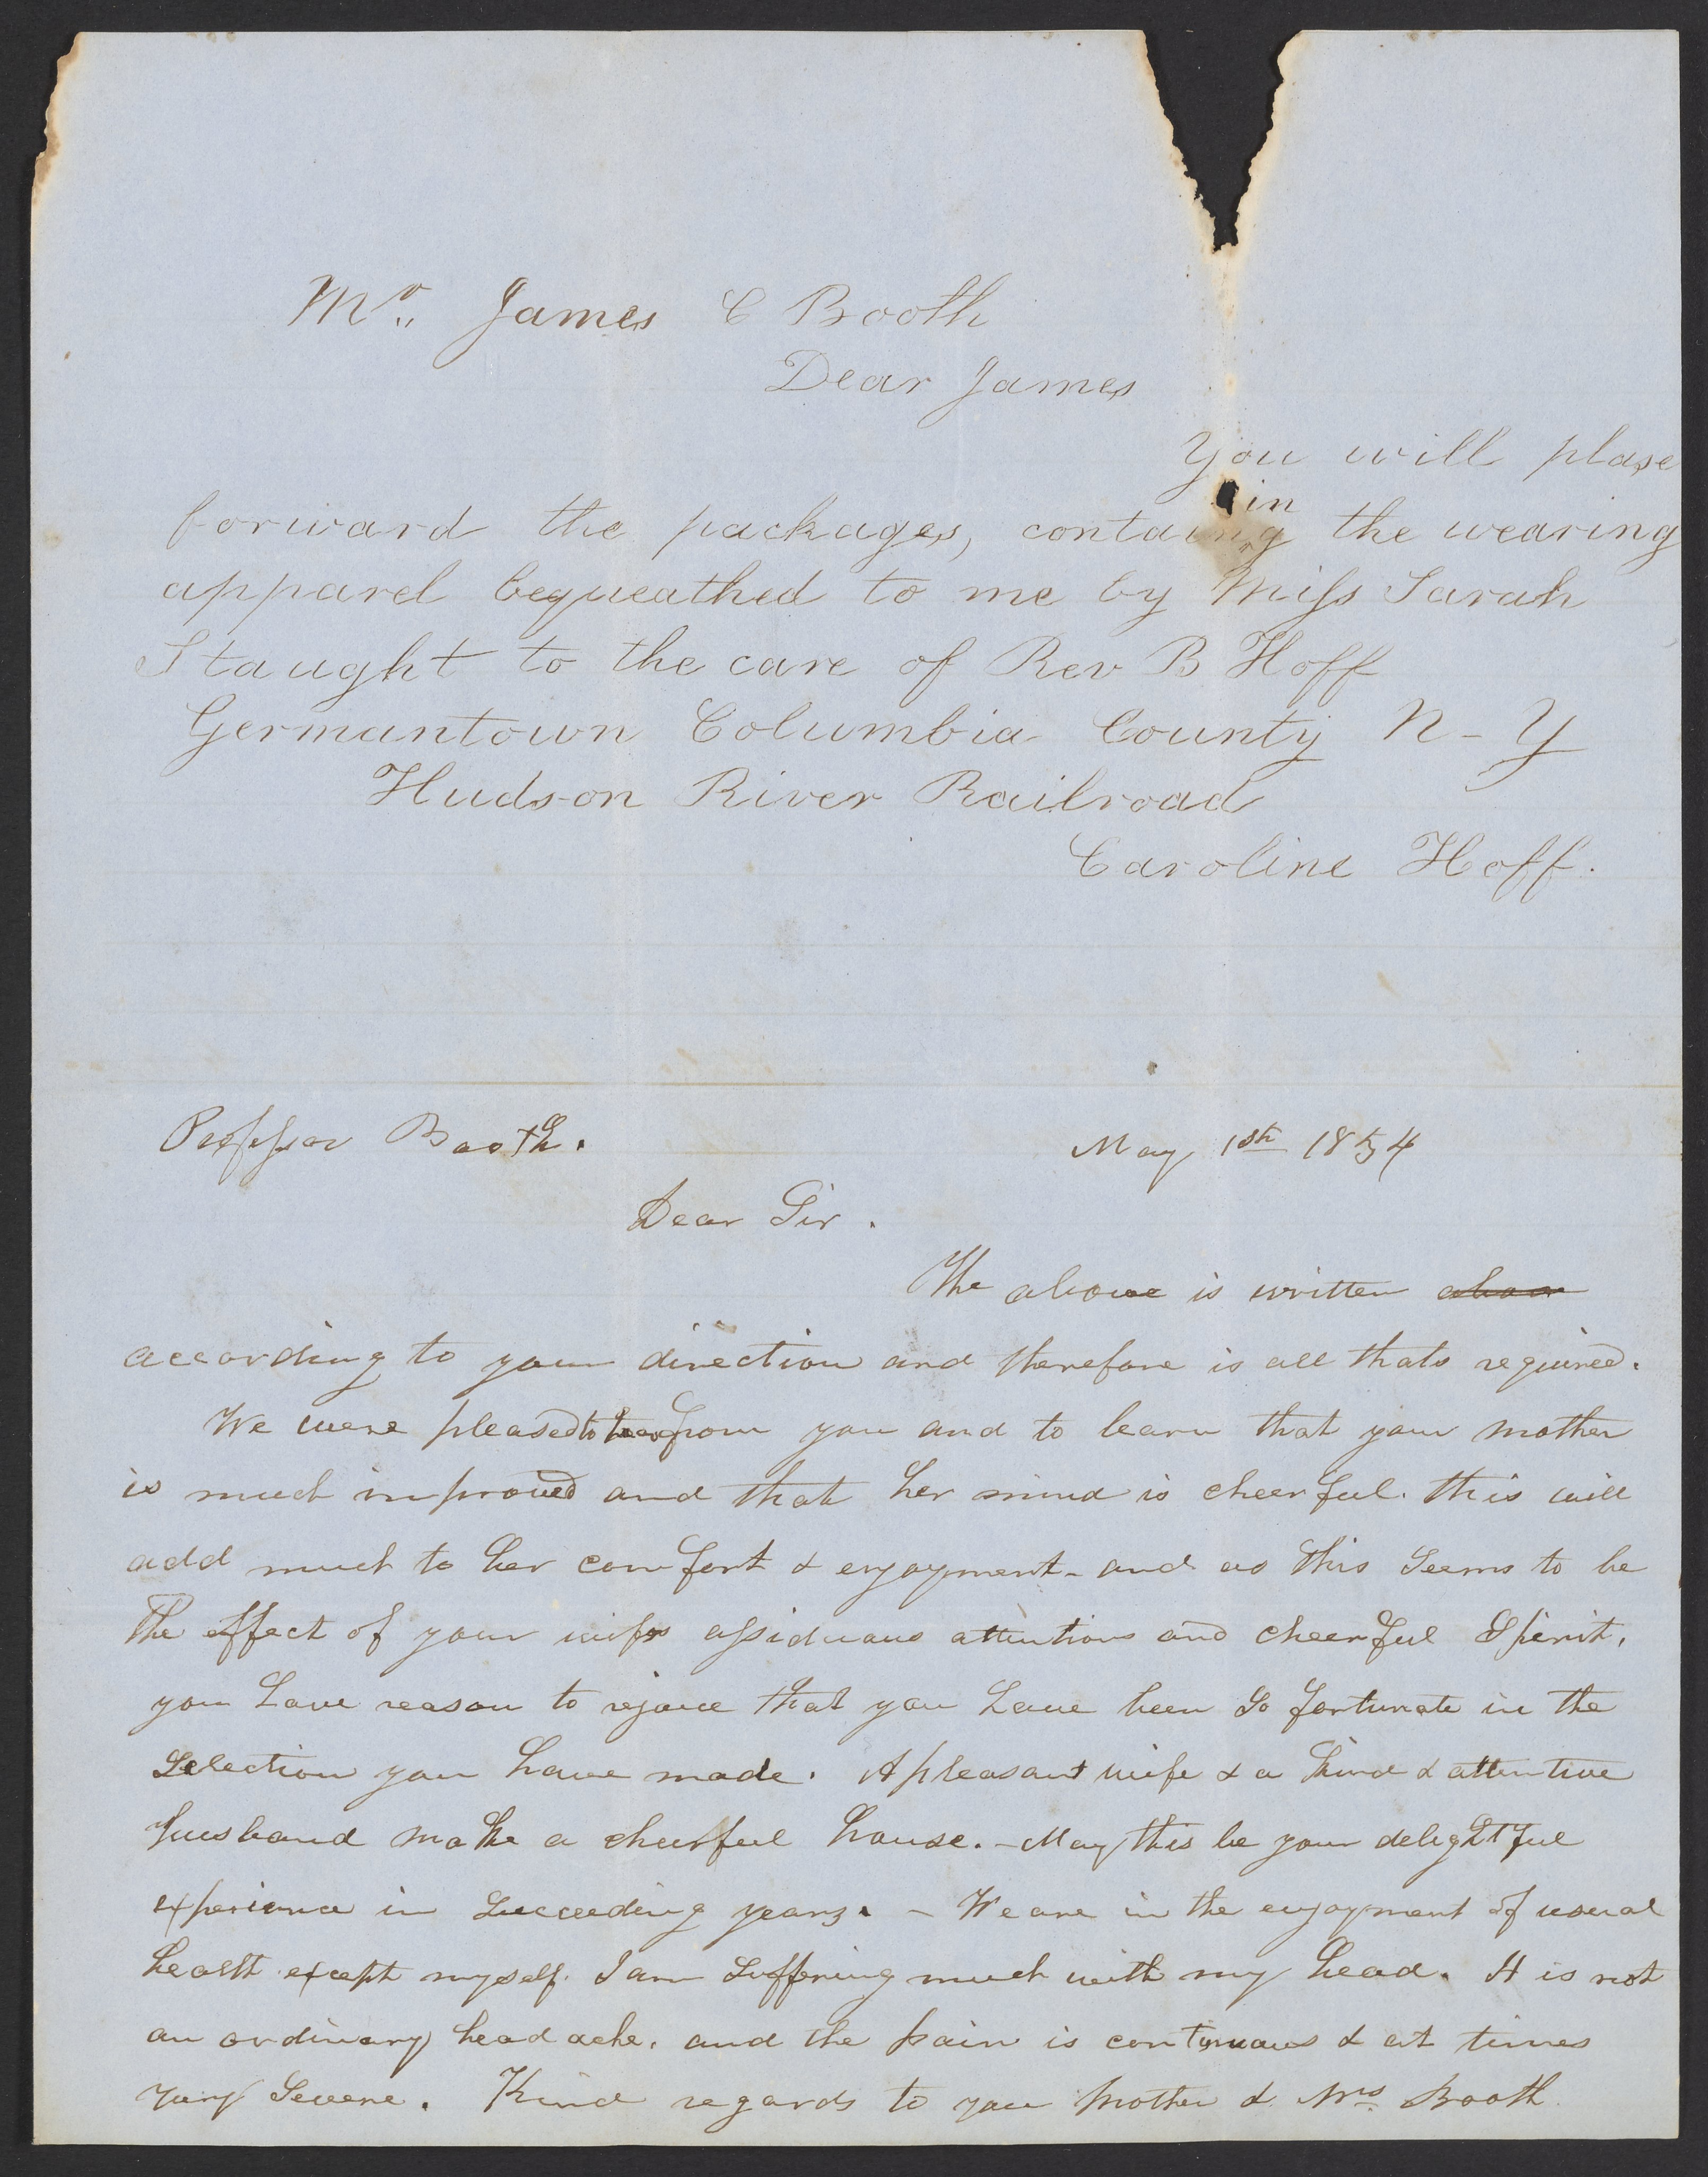 Mr. James C Booth
Dear James
You will plase
forward the packages, containing the wearing
apparel bequeathed to me by Miss Sarah
Staught to the care of Rev B Hoff
Germantown Columbia County N-Y
Hudson River Railroad
Caroline Hoff.
Professor Booth. May 1st 1854
Dear Sir.
The above is written
according to your direction and therefore is all thats required.
We were pleased to hear from you and to learn that your mother
is much improved and that her mind is cheerful. this will
add much to her comfort & enjoyment- and as this seems to be
the effect of your wifes assiduous attentions and cheerful Spirit,
you have reason to rejoice that you have been so fortunate in the
Selection you have made. A pleasant wife & a kind & attentive
husband make a cheerful house. - May this be your delightful
experience in succeeding years. - We are in the enjoyment of usual
health except myself. I am suffering much with my head. It is not
an ordinary head ache. and the pain is continuous & at times
very Severe. Kind regards to you mother & Mrs Booth